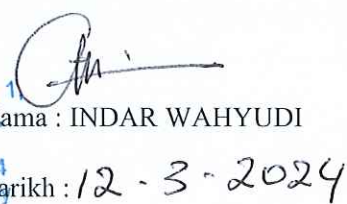 ama : INDAR WAHYUDI
arikh : 12 - 3 - 2024